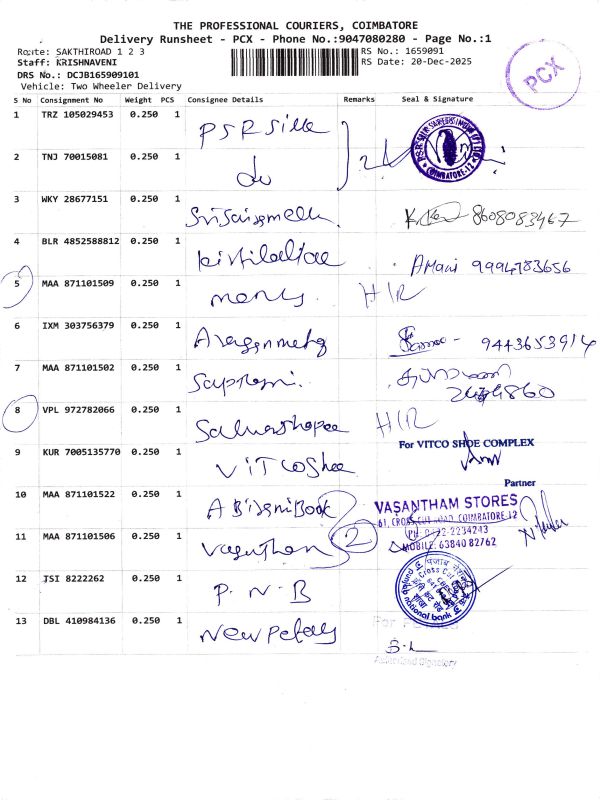 THE PROFESSIONAL COURIERS, COIMBATORE
Delivery Runsheet - PCX - Phone No.:9047080280 - Page No.:1
Route: SAKTHIROAD 1 2 3
RS No.: 1659091
Staff: KRISHNAVENI
RS Date: 20-Dec-2025
DRS No.: DCJB165909101
Vehicle: Two Wheeler Delivery
PCX
S No Consignment No Weight PCS Consignee Details Remarks Seal & Signature
1 TRZ 105029453 0.250 1 PSR Silk
2 TNJ 70015081 0.250 1 do
COIMBATORE-12
3 WKY 28677151 0.250 1 8608083467
4 BLR 4852588812 0.250 1 AMani 9994783656
5 MAA 871101509 0.250 1 H/R
6 IXM 303756379 0.250 1 9443653914
7 MAA 871101502 0.250 1
8 VPL 972782066 0.250 1 H/R
For VITCO SHOE COMPLEX
9 KUR 7005135770 0.250 1 VITCOShoe
Partner
10 MAA 871101522 0.250 1
VASANTHAM STORES
61, CROSS CUT ROAD, COIMBATORE-12
11 MAA 871101506 0.250 1 Vasantham 2
PH: 0422-2234243
MOBILE: 63840 82762
12 JSI 8222262 0.250 1 P.N.B
Cross Cut
national bank
13 DBL 410984136 0.250 1
Authorised Signatory